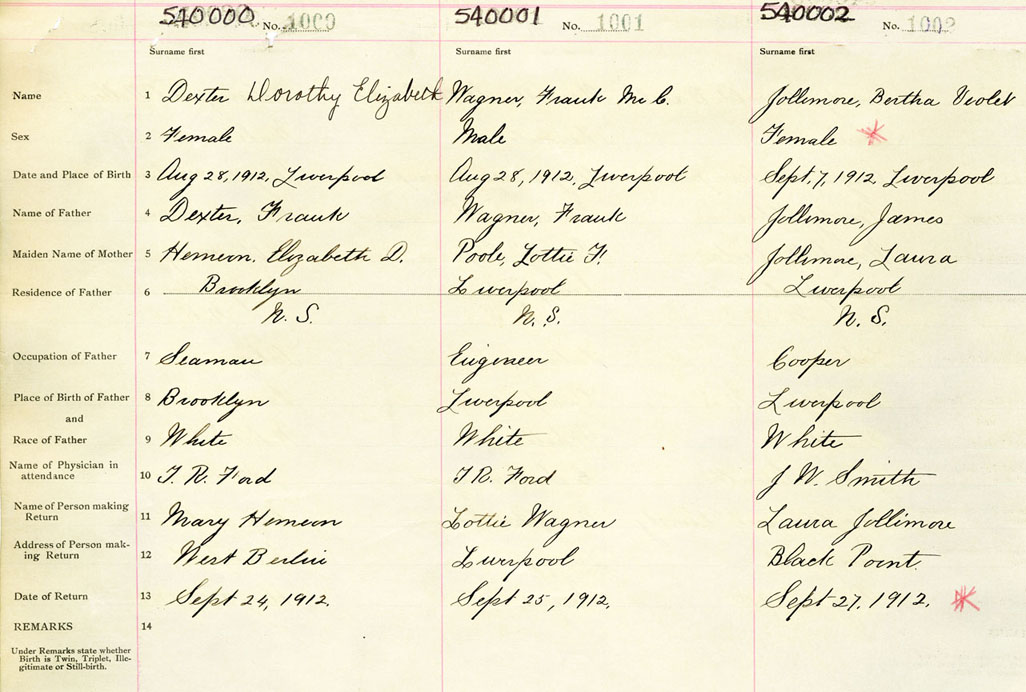 540000 No. 1000 540001 No. 1001 540002 No. 1002
Surname first Surname first Surname first
Name 1 Dexter Dorothy Elizabeth Wagner, Frank Mc C. Jollimore, Bertha Violet
Sex 2 Female Male Female
Date and Place of Birth 3 Aug 28, 1912, Liverpool Aug 28, 1912, Liverpool Sept. 7, 1912, Liverpool
Name of Father 4 Dexter, Frank Wagner, Frank Jollimore, James
Maiden Name of Mother 5 Hemeon. Elizabeth D. Poole, Lottie F. Jollimore, Laura
Residence of Father 6 Brooklyn Liverpool Liverpool
N. S. N. S. N. S.
Occupation of Father 7 Seaman Engineer Cooper
Place of Birth of Father 8 Brooklyn Liverpool Liverpool
and
Race of Father 9 White White White
Name of Physician in
attendance 10 T. R. Ford T R. Ford J W. Smith
Name of Person making
Return 11 Mary Hemeon Lottie Wagner Laura Jollimore
Address of Person mak-
ing Return 12 West Berlin Liverpool Black Point.
Date of Return 13 Sept 24, 1912. Sept 25, 1912, Sept 27. 1912.
REMARKS 14
Under Remarks state whether
Birth is Twin, Triplet, Ille-
gitimate or Still-birth.